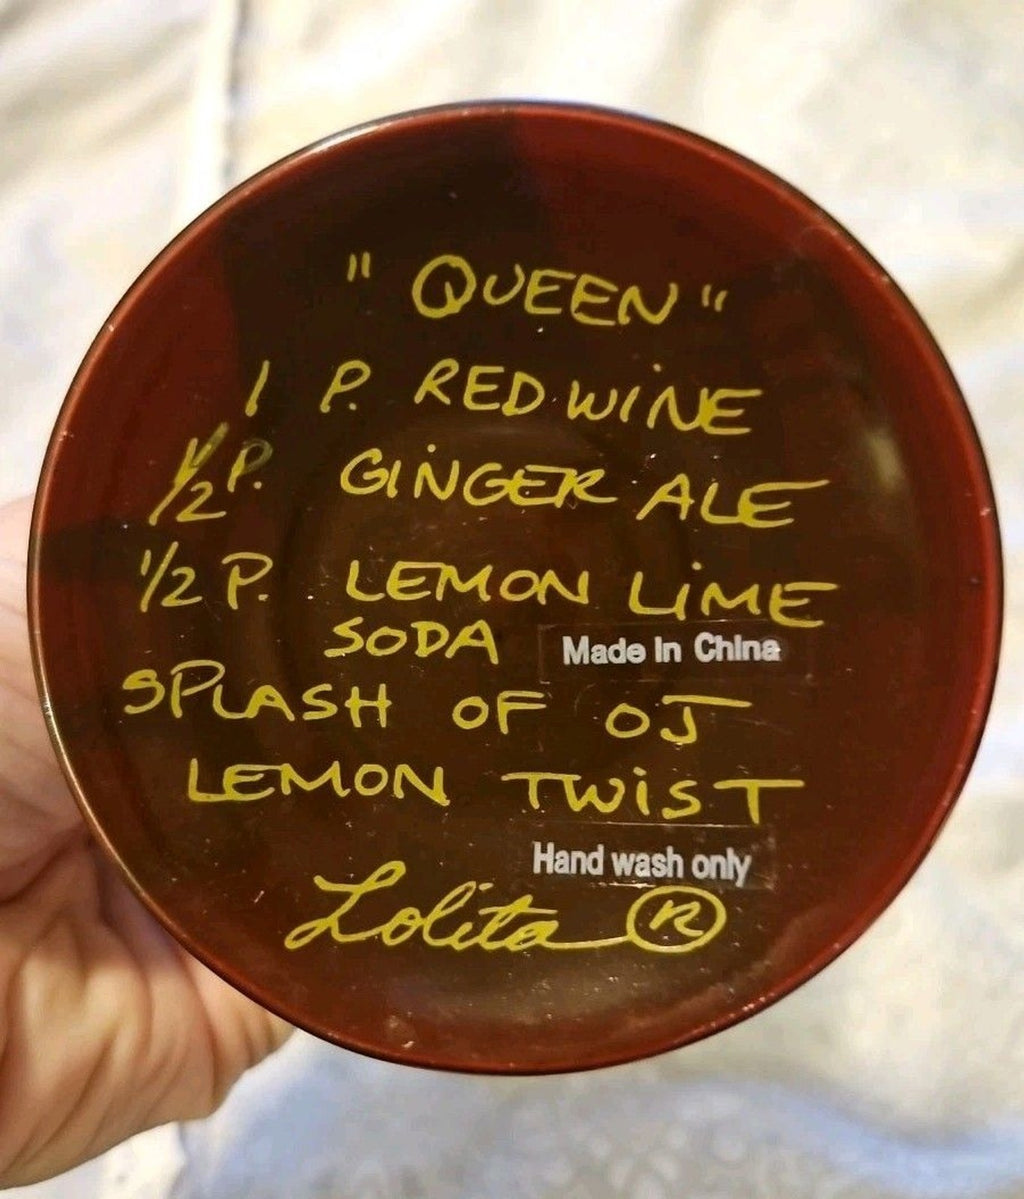 "QUEEN"
1 P. RED WINE
1/2 P. GINGER ALE
1/2 P. LEMON LIME
SODA
Made In China
SPLASH OF OJ
LEMON TWIST
Hand wash only
Lolita ®